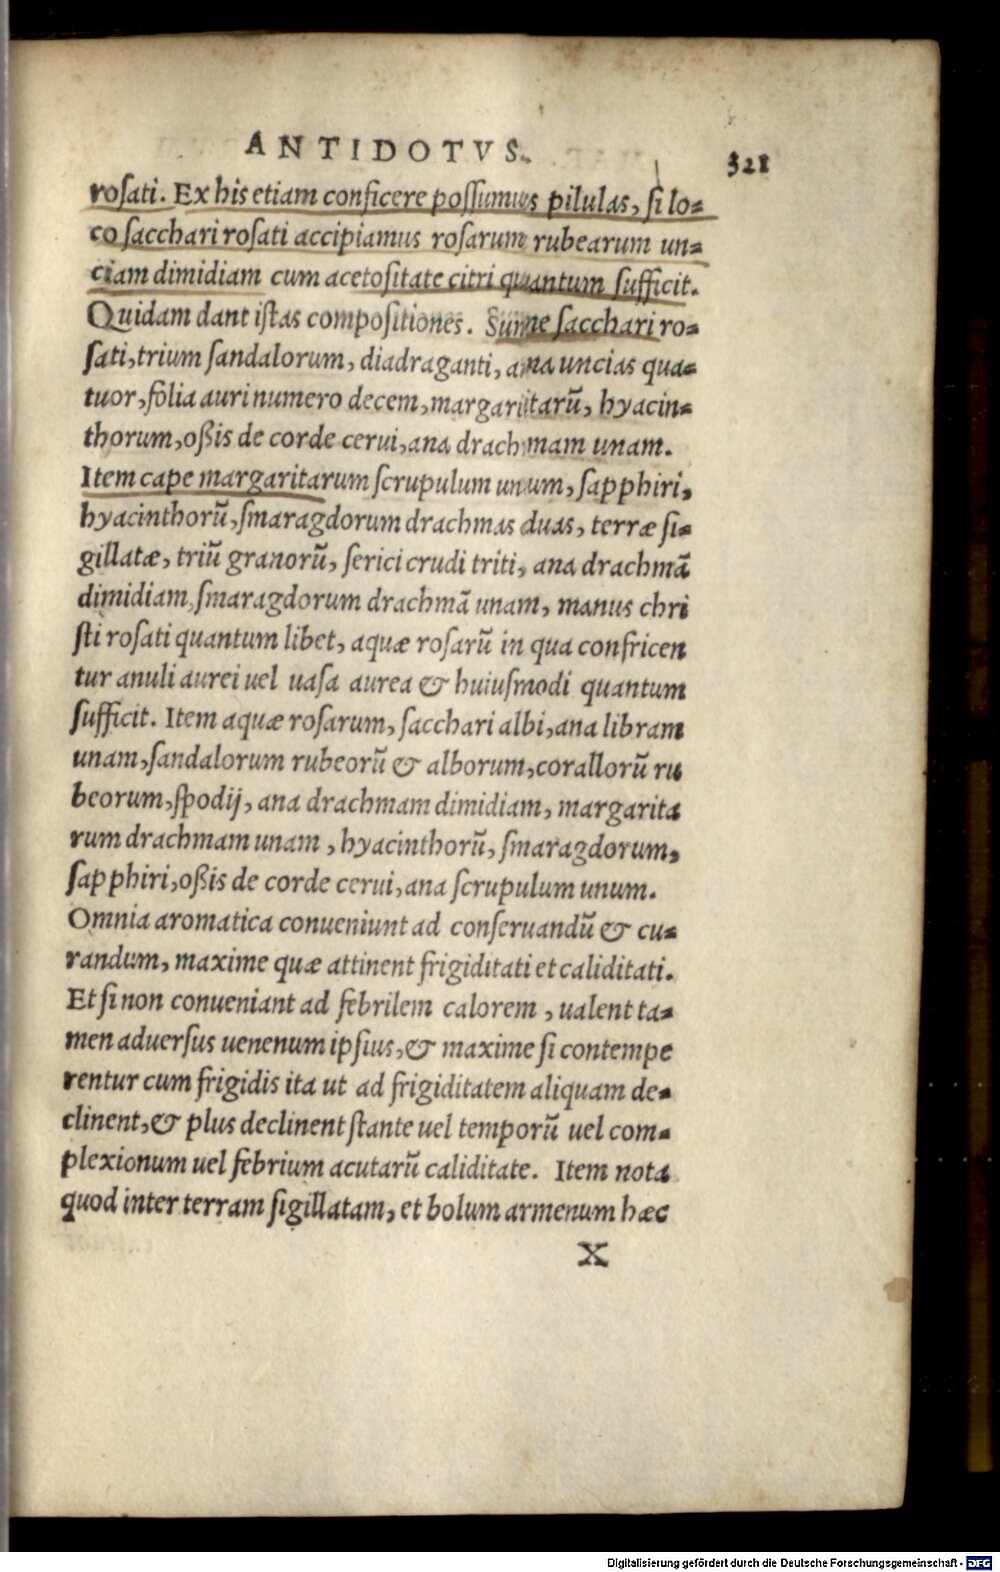 ANTIDOTVS.
321
rosati. Ex his etiam conficere possumus pilulas, si lo=
co sacchari rosati accipiamus rosarum rubearum un=
ciam dimidiam cum acetositate citri quantum sufficit.
Quidam dant istas compositiones. Sume sacchari ro=
sati, trium sandalorum, diadraganti, ana uncias qua=
tuor, folia auri numero decem, margaritarū, hyacin=
thorum, oßis de corde cerui, ana drachmam unam.
Item cape margaritarum scrupulum unum, sapphiri,
hyacinthorū, smaragdorum drachmas duas, terræ si=
gillatæ, triū granorū, serici crudi triti, ana drachmā
dimidiam, smaragdorum drachmā unam, manus chri
sti rosati quantum libet, aquæ rosarū in qua confricen
tur anuli aurei uel uasa aurea & huiusmodi quantum
sufficit. Item aquæ rosarum, sacchari albi, ana libram
unam, sandalorum rubeorū & alborum, corallorū ru
beorum, spodij, ana drachmam dimidiam, margarita
rum drachmam unam, hyacinthorū, smaragdorum,
sapphiri, oßis de corde cerui, ana scrupulum unum.
Omnia aromatica conueniunt ad conseruandū & cu=
randum, maxime quæ attinent frigiditati et caliditati.
Et si non conueniant ad febrilem calorem, ualent ta=
men aduersus uenenum ipsius, & maxime si contempe
rentur cum frigidis ita ut ad frigiditatem aliquam de=
clinent, & plus declinent stante uel temporū uel com=
plexionum uel febrium acutarū caliditate. Item nota
quod inter terram sigillatam, et bolum armenum hæc
X
Digitalisierung gefördert durch die Deutsche Forschungsgemeinschaft - DFG